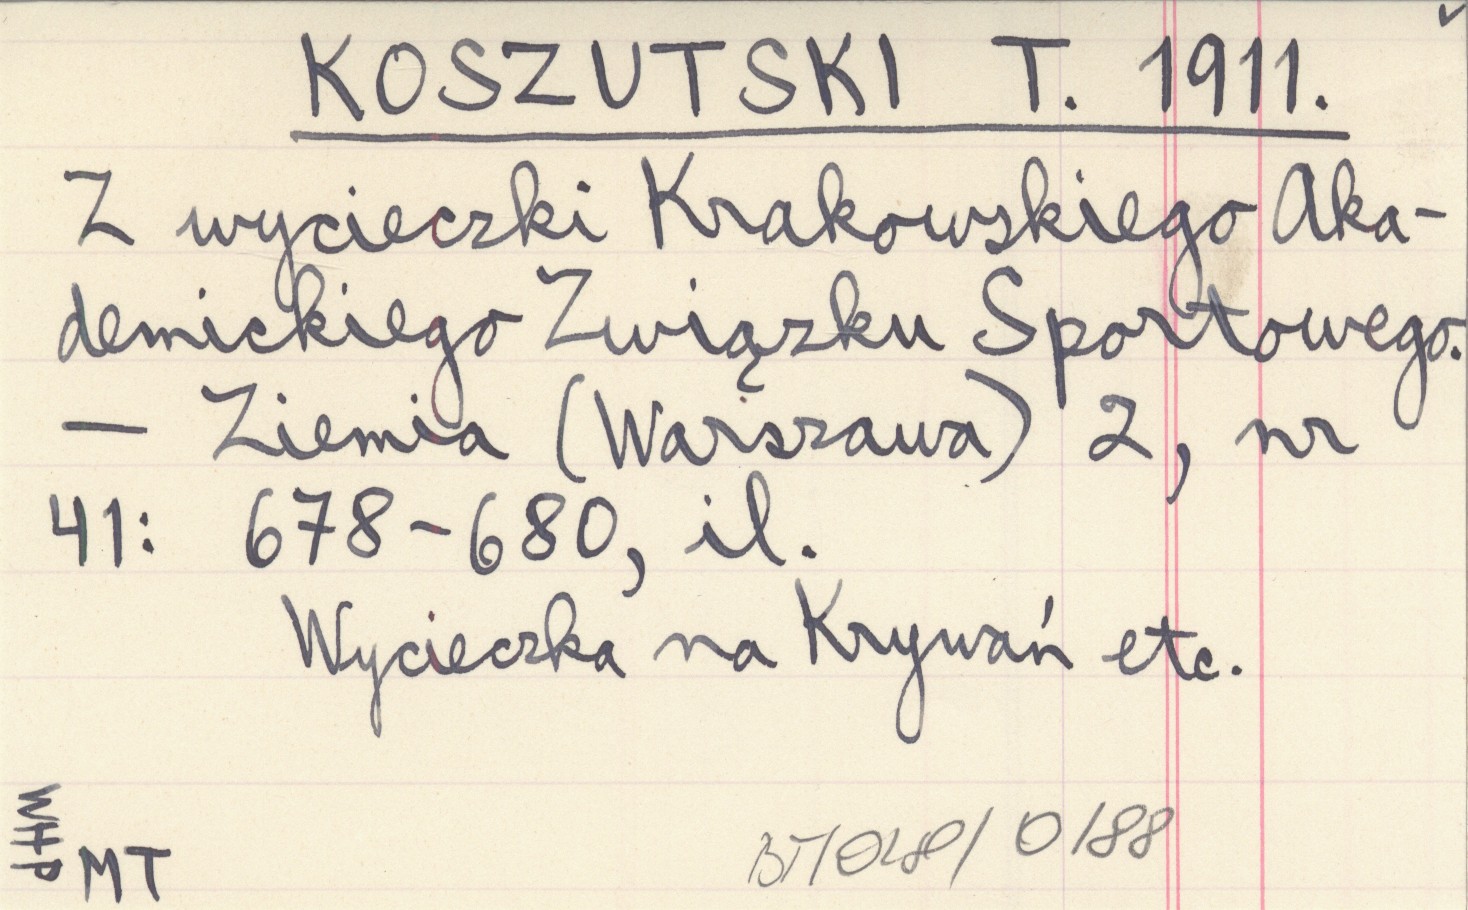 KOSZUTSKI T. 1911.
Z wycieczki Krakowskiego Aka-
demickiego Związku Sportowego.
— Ziemia (Warszawa) 2, nr
41: 678-680, il.
Wycieczka na Krywań etc.
WHP
MT
0/88